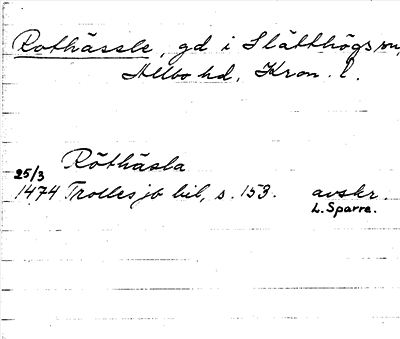 Rothässle, gd i Slätthögs sn,
Allbo hd, Kron. l.
Röthäsla
25/3
1474 Trolles jb bil, s. 153. avskr.
L. Sparre.